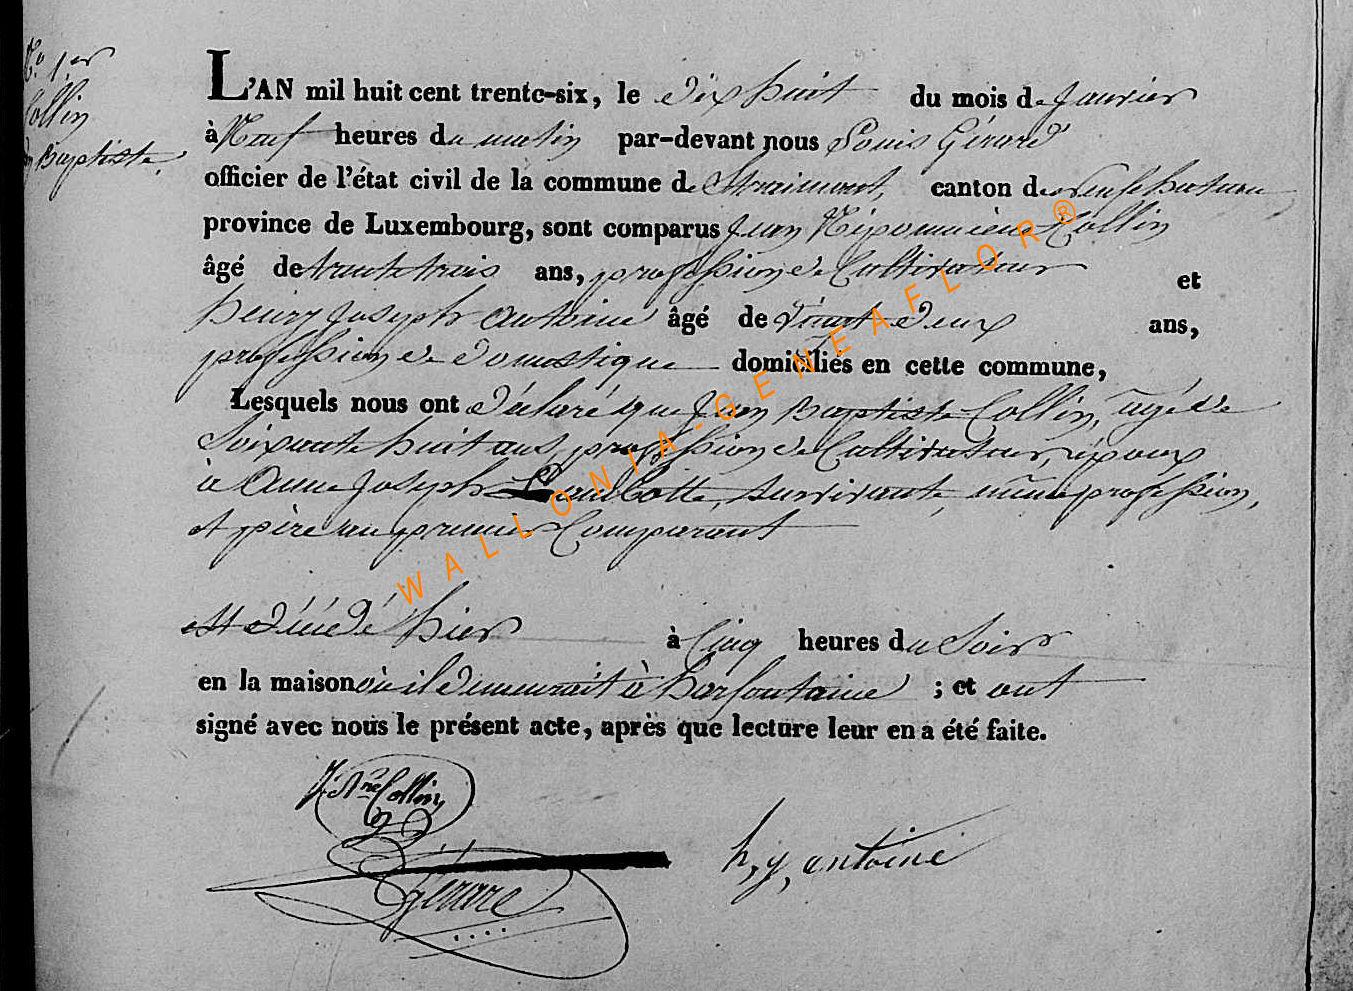 N.º 1er
Collin
Baptiste.
L'AN mil huit cent trente-six, le dix huit du mois de Janvier
à Neuf heures du matin par-devant nous Louis Gérard
officier de l'état civil de la commune de Straimont, canton de Neufchateau
province de Luxembourg, sont comparus Jean Nipomucène Collin
âgé de trente trois ans, profession de Cultivateur et
henry Joseph Antoine âgé de vingt deux ans,
profession de domestique domiciliés en cette commune,
Lesquels nous ont déclaré que Jean Baptiste Collin, agé de
Soixante huit ans, profession de Cultivateur, époux
à Anne Joseph survivante, même profession,
et père au premier Comparant
est décédé hier à Cinq heures du Soir
en la maison où il demeurait à harfontaine ; et ont
signé avec nous le présent acte, après que lecture leur en a été faite.
J. N. Collin
h, j, antoine
Gérard
WALLONIA-GENEAFLOR®